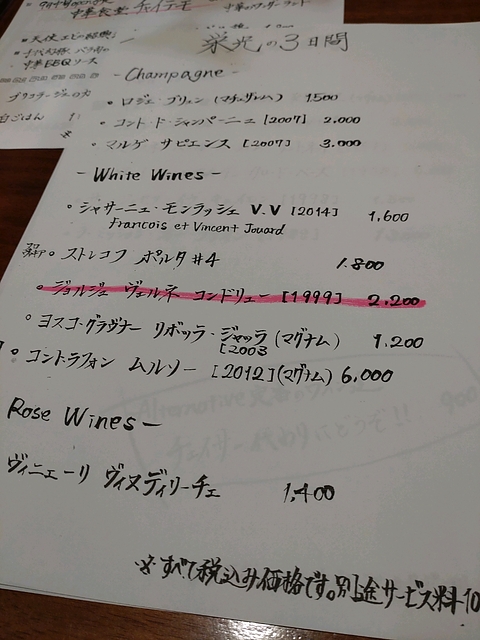 中華食堂 チャイデモ
・天使エビの
中華BBQソース
白ごはん
栄光の3日間
- Champagne -
• ロジェ・ブリュン (マチュザレム) 1.500
• コント・ド・シャンパーニュ [2007] 2.000
• マルゲ サピエンス [2007] 3.000
- White Wines -
• シャサーニュ・モンラッシェ V.V [2014] 1,600
Francois et Vincent Jouard
• ストレコフ ポルタ #4 1.800
• ジョルジュ ヴェルネ コンドリュー [1999] 2.200
• ヨスコ・グラヴナー リボッラ・ジャッラ (マグナム) 1.200
[2003
• コント・ラフォン ムルソー [2012] (マグナム) 6,000
Rose Wines -
ヴィニェーリ ヴィヌディリーチェ 1,400
※すべて税込み価格です。別途サービス料10